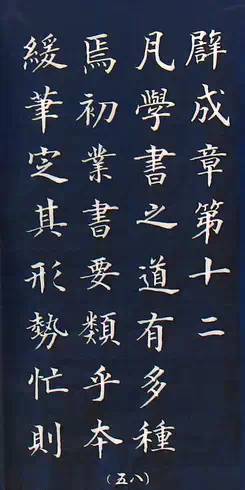 辟成章第十二
凡學書之道有多種
焉初業書要類乎本
緩筆定其形勢忙則
（五八）